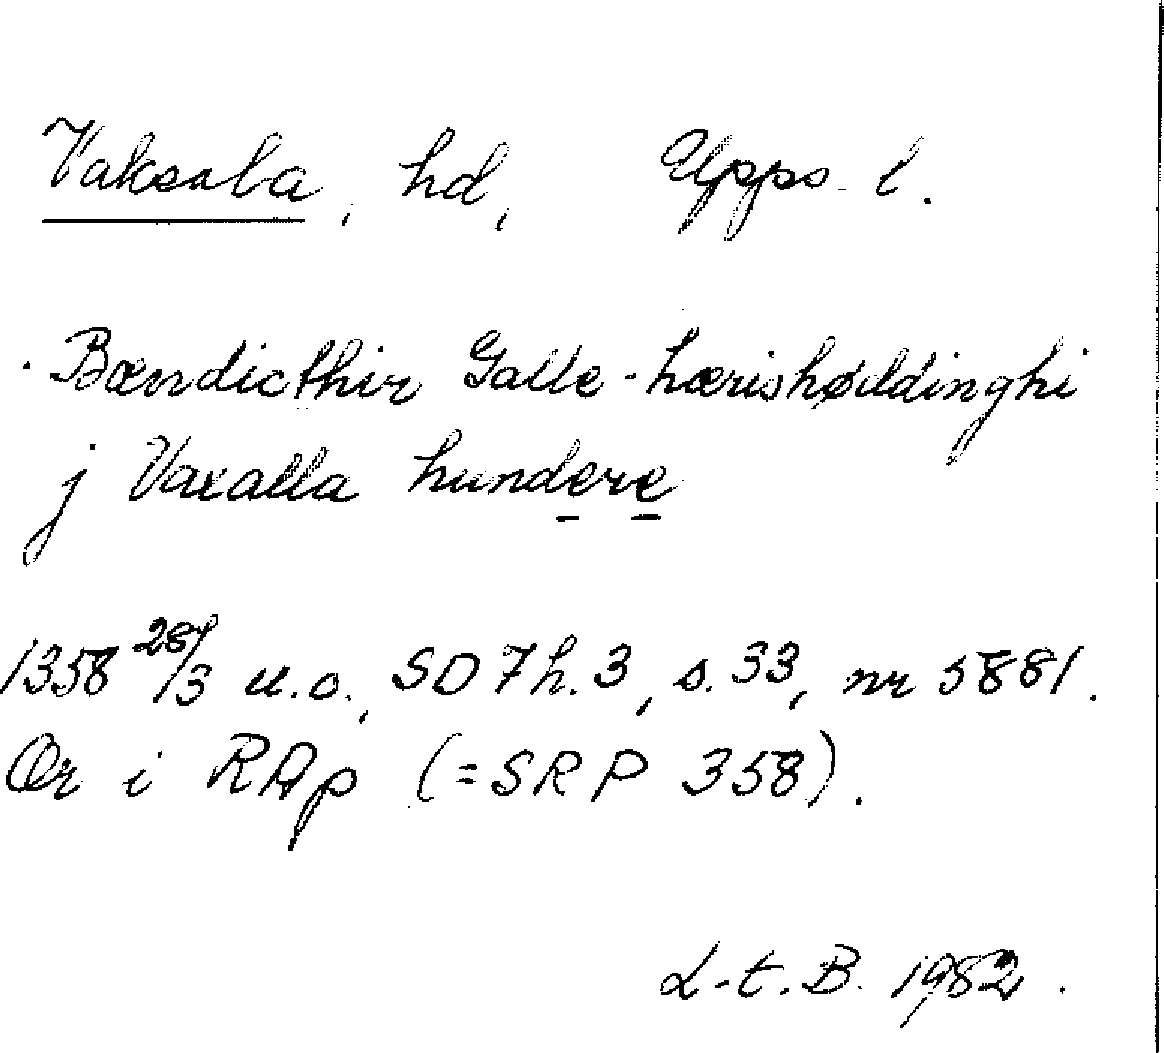 Vaksala, hd, Upps. l.
Bændicthir Galle - hærishøddinghi
j Vaxalla hundere
1358 28/3 u.o., SD 7 h. 3, s. 33, nr 5881.
Or i RAp (= SRP 358).
L-t. B. 1982.